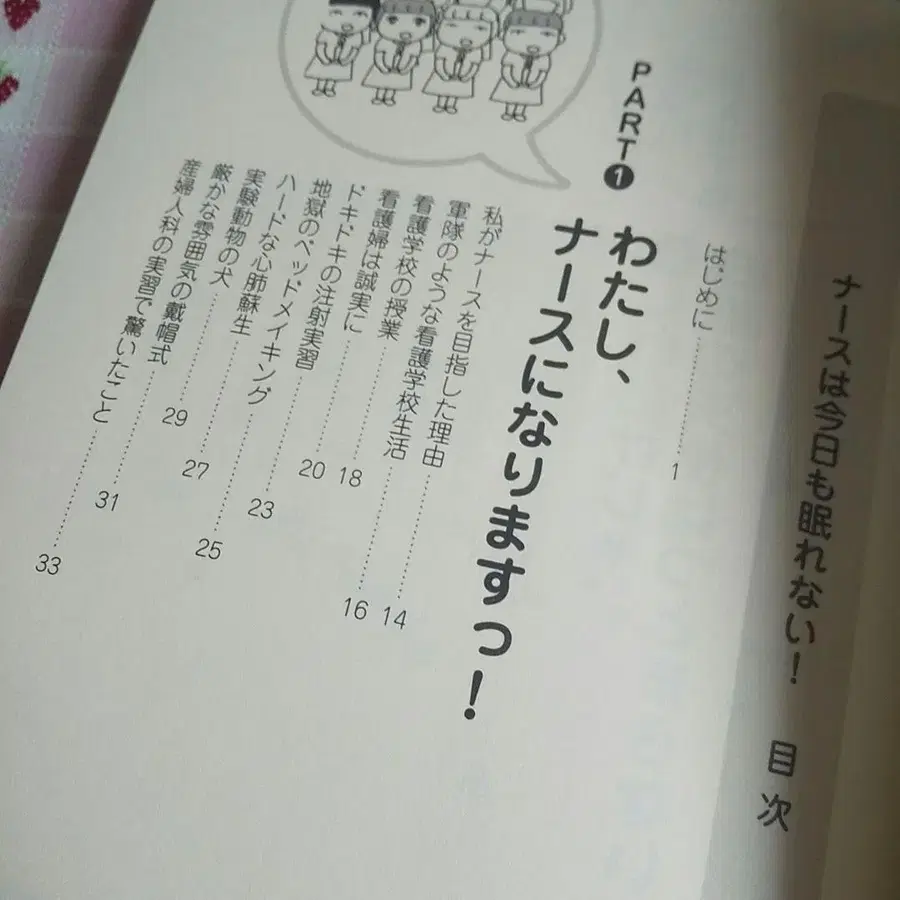 ナースは今日も眠れない! 目次
はじめに……………1
PART❶
わたし、
ナースになりますっ!
私がナースを目指した理由……………14
軍隊のような看護学校生活……………16
看護学校の授業……………18
看護婦は誠実に……………20
ドキドキの注射実習……………23
地獄のベッドメイキング……………25
ハードな心肺蘇生……………27
実験動物の犬……………29
厳かな雰囲気の戴帽式……………31
産婦人科の実習で驚いたこと……………33